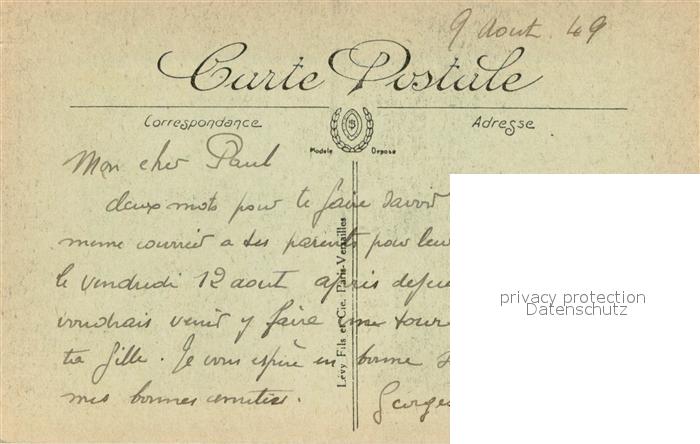 9 Aout 49
Carte Postale
Correspondance
Adresse
Modèle Déposé
Mon cher Paul
deux mots pour te faire savoir
meme courrier a tes parents pour leur
le vendredi 12 aout apris
voudrais venir y faire une tour
ta fille. Je vous espère en bonne
mes bonnes amities. Georges
Lévy Fils et Cie, Paris-Versailles
privacy protection
Datenschutz